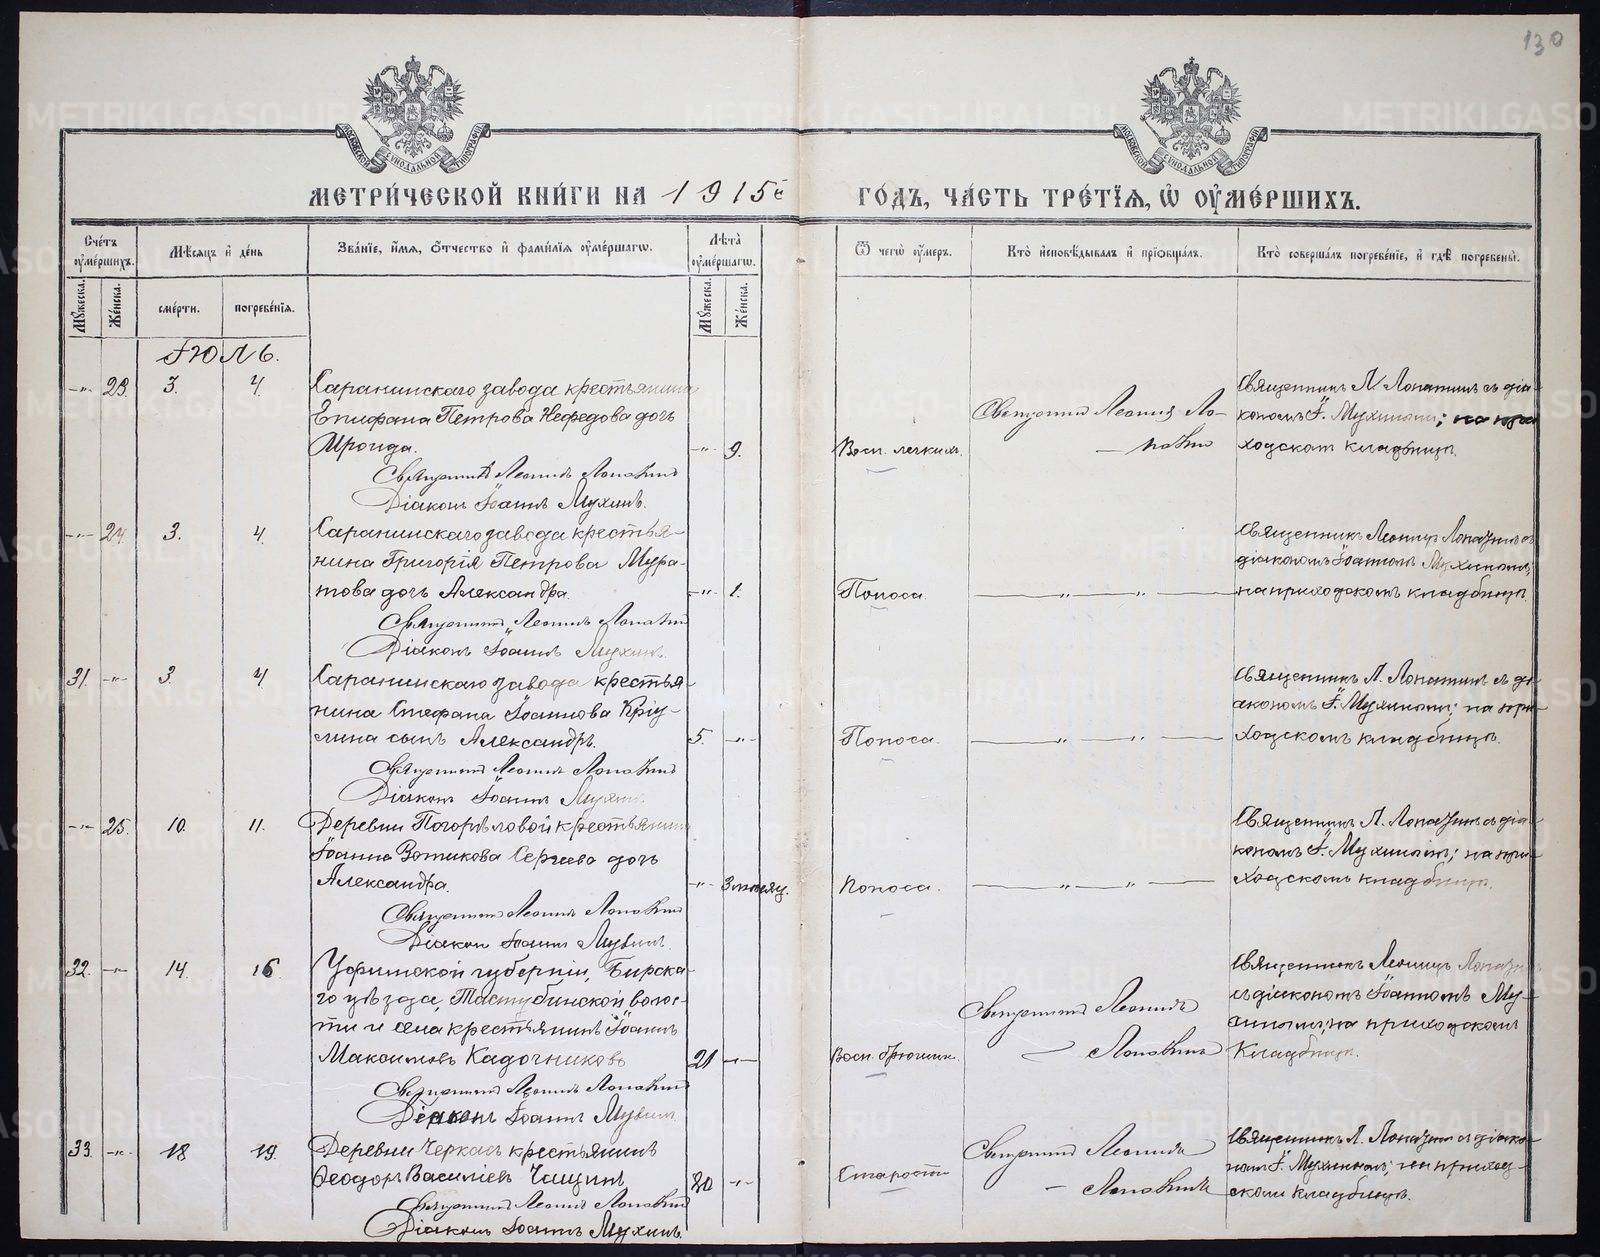 130
МОСКОВСКОЙ СѴНОДАЛЬНОЙ ТИПОГРАФІИ
МОСКОВСКОЙ СѴНОДАЛЬНОЙ ТИПОГРАФІИ
МЕТРИ́ЧЕСКОЙ КНИ́ГИ НА 1915й ГО́ДЪ, ЧА́СТЬ ТРЕ́ТЇѦ, Ѡ҆ ОУ҆МЕ́РШИХЪ.
Сче́тъ оу҆ме́ршихъ.
Мѣ́сяцъ и҆ де́нь
Зва́нїе, и҆́мѧ, ѻ҆́тчество и҆ фами́лїѧ оу҆ме́ршагѡ.
Лѣ́та оу҆ме́ршагѡ.
Ѿ чегѡ̀ оу҆́меръ.
Кто̀ и҆сповѣ́дывалъ и҆ прїѡбща́лъ.
Кто̀ соверша́лъ погребе́нїе, и҆ гдѣ̀ погребены̀.
Мꙋ́жеска.
Же́нска.
сме́рти.
погребе́нїѧ.
Мꙋ́жеска.
Же́нска.
Іюль.
-"- 23. 3. 4. Саранинскаго завода крестьянина
Епифана Петрова Нефедова дочь
Ираида. -"- 9.
Священникъ Леонидъ Лопатинъ
Діаконъ Іоаннъ Мухинъ.
Восп. легкихъ.
Священникъ Леонид Ло-
патин
Священникъ Л. Лопатинъ съ діа-
кономъ І. Мухинымъ; на при
ходскомъ кладбищѣ.
-"- 24. 3. 4. Саранинскаго завода крестья-
нина Григорія Петрова Мура-
това дочь Александра. -"- 1.
Священникъ Леонидъ Лопатин
Діаконъ Іоаннъ Мухинъ.
Поноса. " "
Священникъ Леонидъ Лопатинъ съ
діакономъ Іоанномъ Мухинымъ;
на приходскомъ кладбищѣ.
31. -"- 3. 4. Саранинскаго завода крестья-
нина Стефана Іоаннова
сынъ Александръ. 5. -"-
Священникъ Леонидъ Лопатинъ
Діаконъ Іоаннъ Мухинъ.
Поноса. " "
Священникъ Л. Лопатинъ съ ді-
акономъ І. Мухинымъ; на при-
ходскомъ кладбищѣ.
-"- 25. 10. 11. Деревни Погорѣловой крестьянина
Іоанна Вотикова Сергеева дочь
Александра. -"- 3 месяц.
Священникъ Леонидъ Лопатин
Діакон Іоаннъ Мухинъ.
Поноса. " "
Священникъ Л. Лопатинъ съ діа-
кономъ І. Мухинымъ; на при-
ходскомъ кладбищѣ.
32. -"- 14. 16. Уфимской губерніи, Бирска-
го уѣзда, Тастубинской волос-
ти и села крестьянинъ Іоаннъ
Максимовъ Кадочниковъ 21 -"-
Священникъ Леонидъ Лопатин
Діаконъ Іоаннъ Мухинъ.
Восп. брюшин.
Священникъ Леонидъ
Лопатинъ
Священникъ Леонидъ Лопатинъ
съ діакономъ Іоанномъ Му-
хинымъ; на приходскомъ
кладбищѣ.
33. -"- 18 19. Деревни Черкасъ крестьянинъ
Ѳеодоръ Василіевъ Чащинъ 80 -"-
Священникъ Леонидъ Лопатин
Діаконъ Іоаннъ Мухинъ.
Старости
Священникъ Леонидъ
Лопатинъ
Священникъ Л. Лопатинъ съ діако-
номъ І. Мухинымъ; на приход-
скомъ кладбищѣ.
METRIKI.GASO-URAL.RU